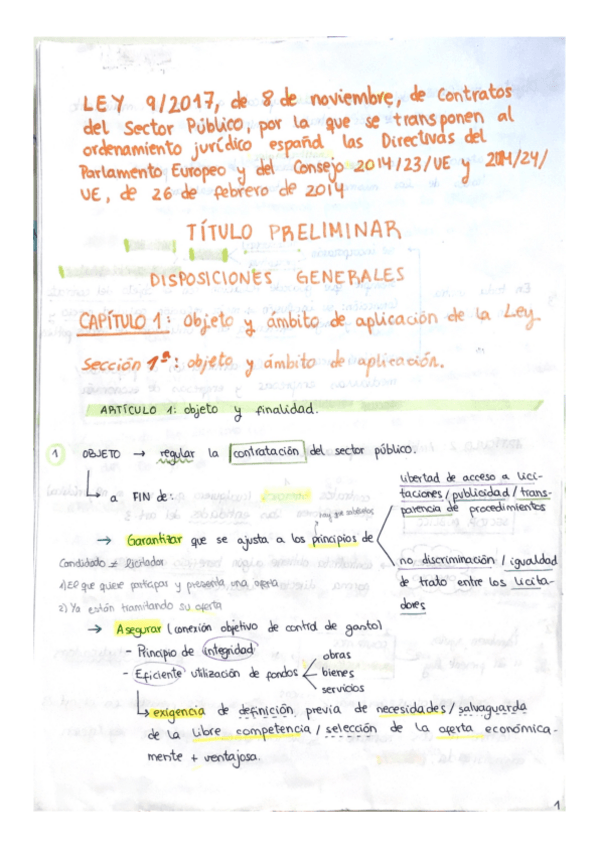 LEY 9/2017, de 8 de noviembre, de Contratos
del Sector Público, por la que se transponen al
ordenamiento jurídico español las Directivas del
Parlamento Europeo y del Consejo 2014/23/UE y 2014/24/
UE, de 26 de febrero de 2014
TÍTULO PRELIMINAR
DISPOSICIONES GENERALES
CAPÍTULO 1: Objeto y ámbito de aplicación de la Ley.
Sección 1ª: objeto y ámbito de aplicación.
ARTÍCULO 1: objeto y finalidad.
1 OBJETO → regular la contratación del sector público.
a FIN de:
hay que saberlos
→ Garantizar que se ajusta a los principios de
libertad de acceso a lici-
taciones / publicidad / trans-
parencia de procedimientos
no discriminación / igualdad
de trato entre los licita-
dores
Candidato ≠ licitador
1) EP que quiere participar y presenta una oferta
2) Ya están tramitando su oferta
→ Asegurar (conexión objetivo de control de gasto)
- Principio de integridad
- Eficiente utilización de fondos
obras
bienes
servicios
exigencia de definición previa de necesidades / salvaguarda
de la libre competencia / selección de la oferta económica-
mente + ventajosa.
1